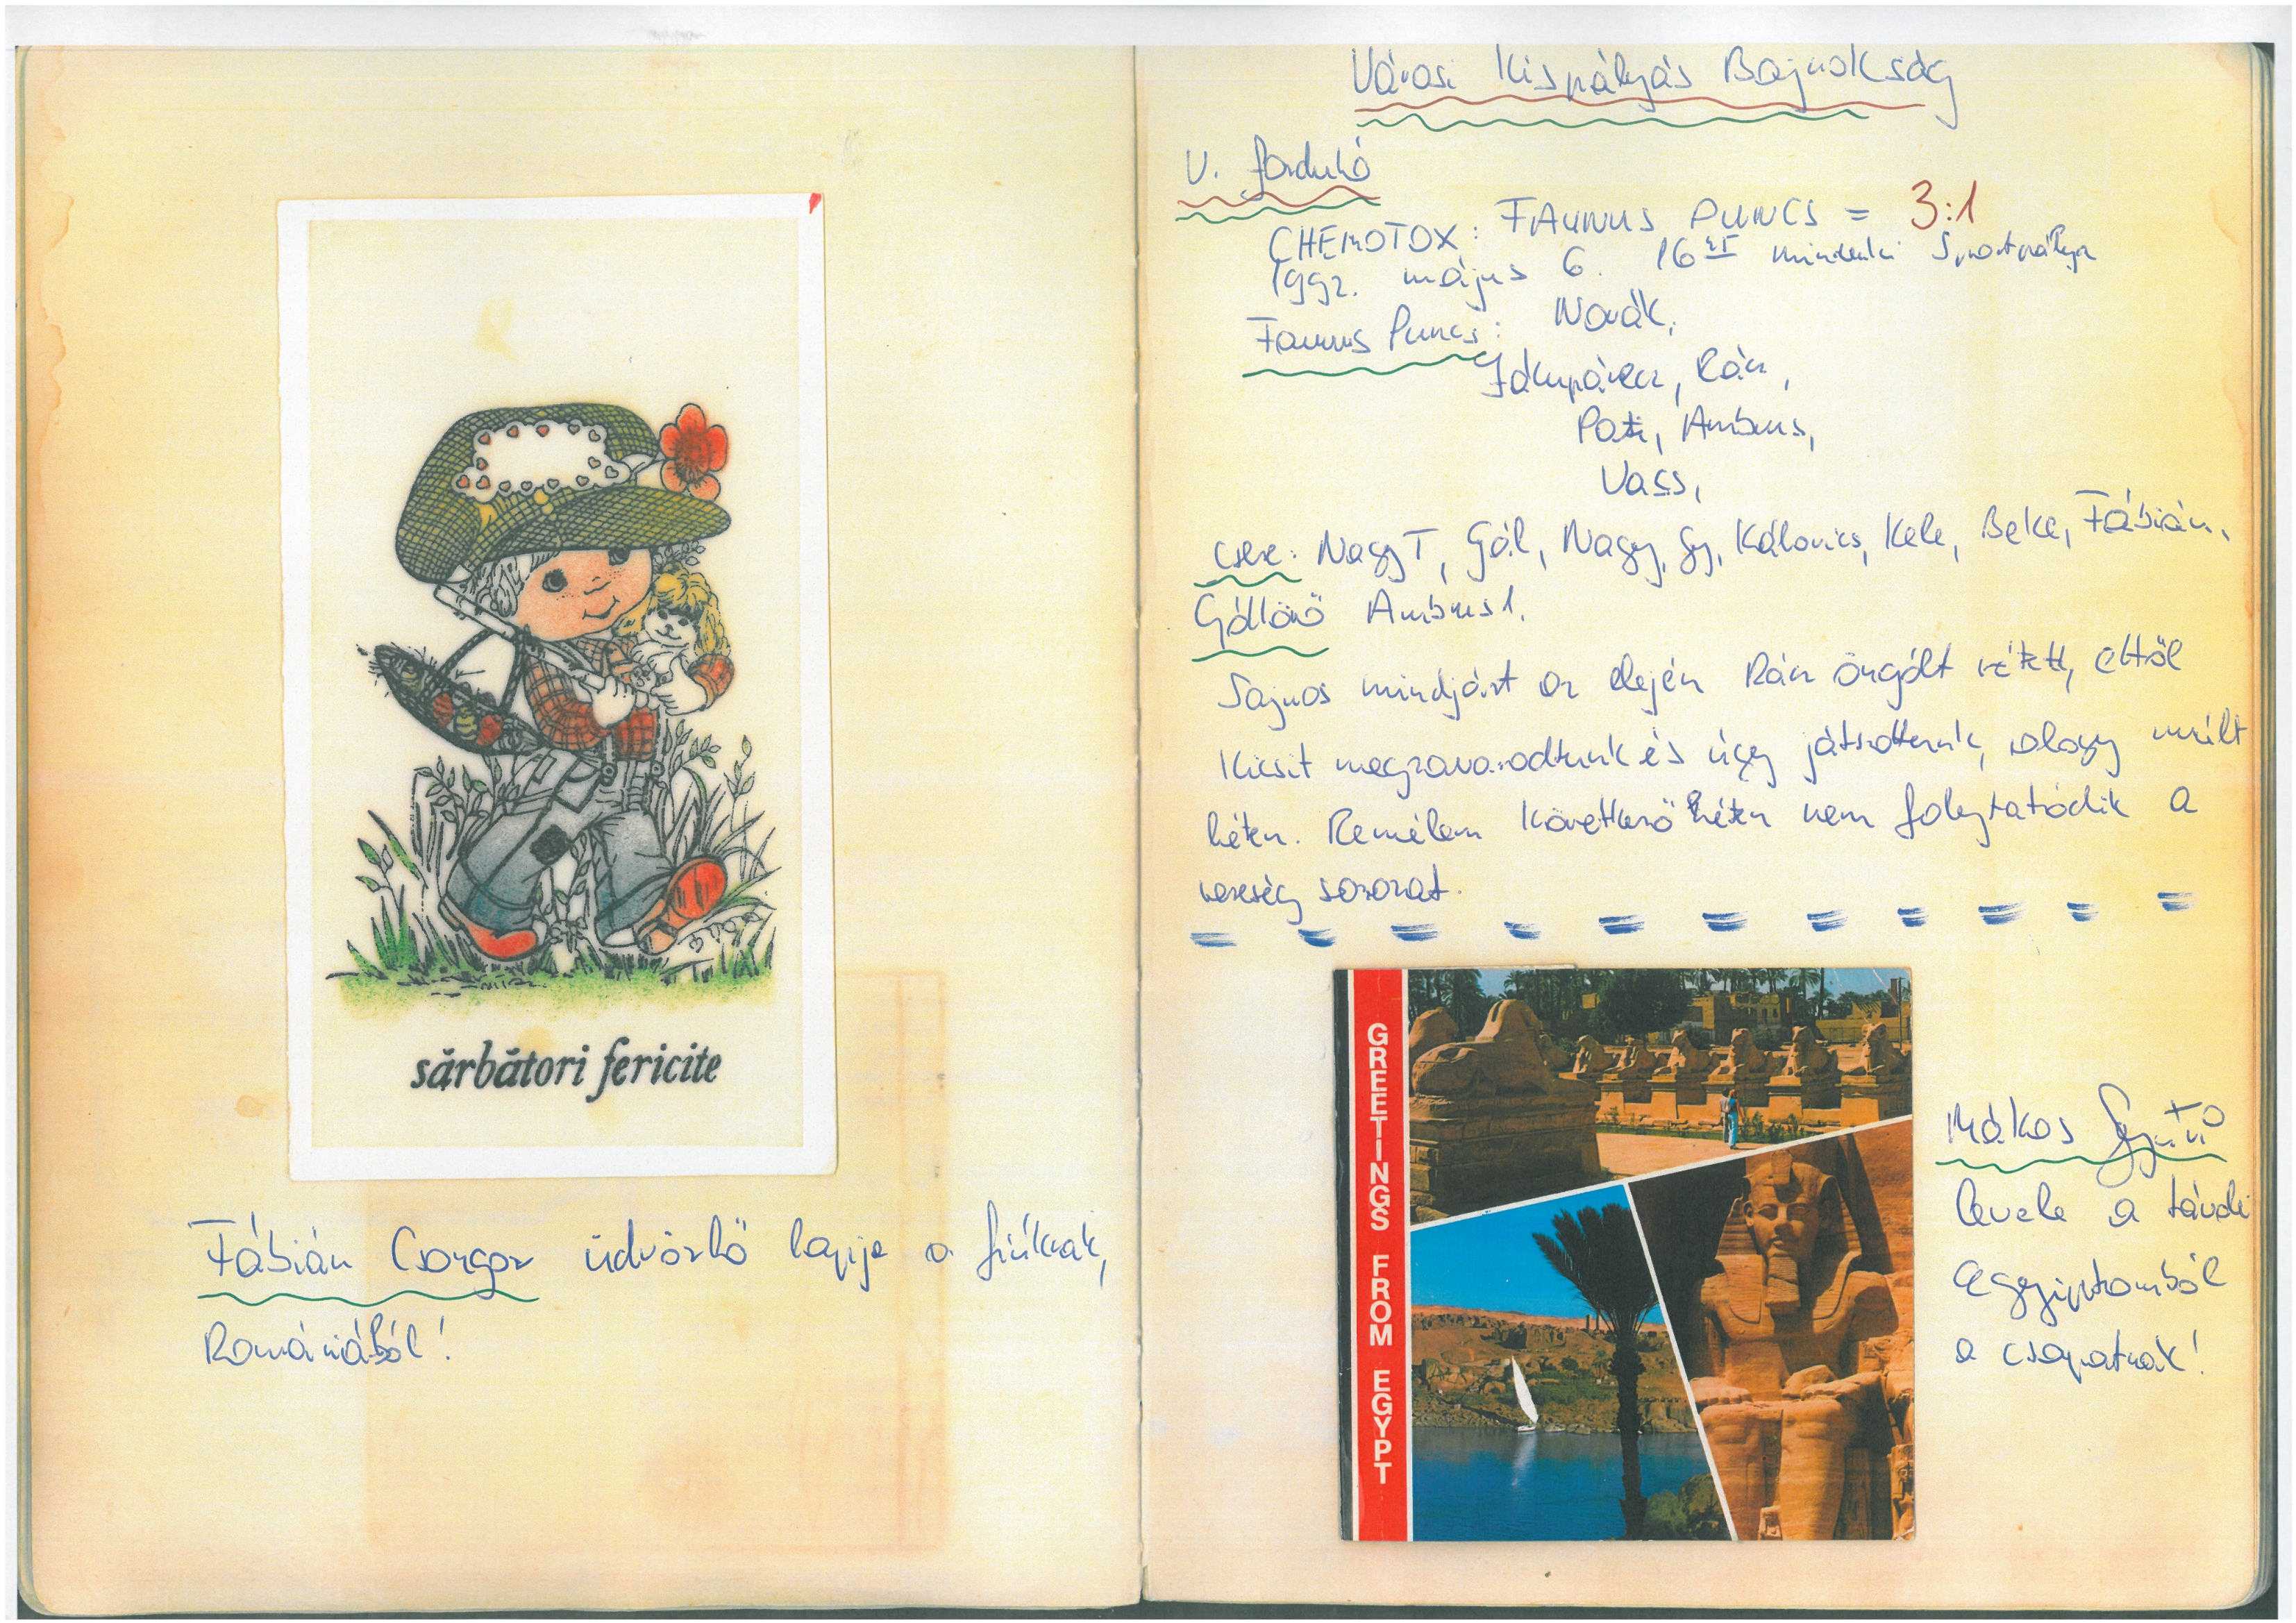 sărbători fericite
Fábián Csongor üdvözlő lapja a fiúknak,
Romániából!
Városi Kispályás Bajnokság
V. forduló
CHEMOTOX: FAUNUS PUNCS = 3:1
1992. május 6. 16 Sportpálya
Faunus Puncs: Novák,
Rácz,
Ambrus,
Vass,
Csere: Nagy T, Gál, Nagy, Gy, Kálovics, Kele, Beke, Fábián,
Góllövő Ambrus 1.
Sajnos mindjárt az elején Rácz öngólt vétett, ettől
kicsit megzavarodtunk és úgy játszottunk, ahogy múlt
héten. Remélem következő héten nem folytatódik a
vereség sorozat.
GREETINGS FROM EGYPT
Mákos
levele a távoli
Egyiptomból
a csapatnak!